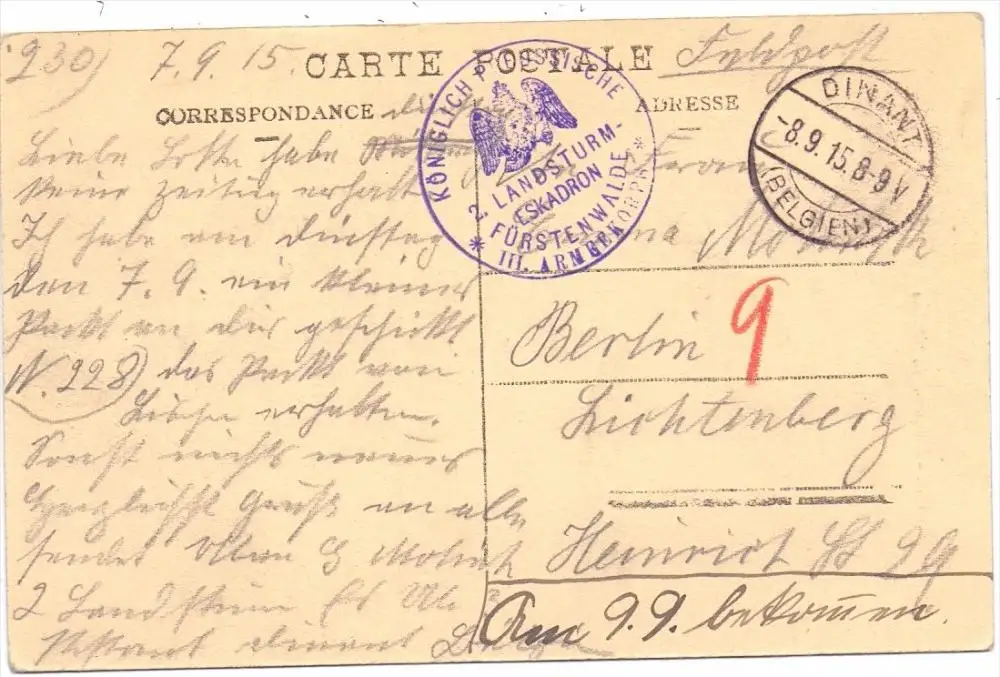 230) 7.9.15.
CARTE POSTALE
Feldpost
CORRESPONDANCE
ADRESSE
KÖNIGLICH PREUSSISCHE
LANDSTURM-
ESKADRON
FÜRSTENWALDE
* III. ARMEEKORPS *
DINANT
-8.9.15.8-9V
(BELGIEN)
Liebe Lotte habe
keine Zeitung erhalten
Ich habe am Dienstag
den 7.9. ein kleines
Packt an dir geschickt
N. 228) das Packt von
erhalten.
Sonst nichts neues
Herzlichste Grüße an alle
sendet
2 Landsturm
Dinant
Frau
Berlin 9
Lichtenberg
Heinrich St 29
Am 9.9. bekommen.